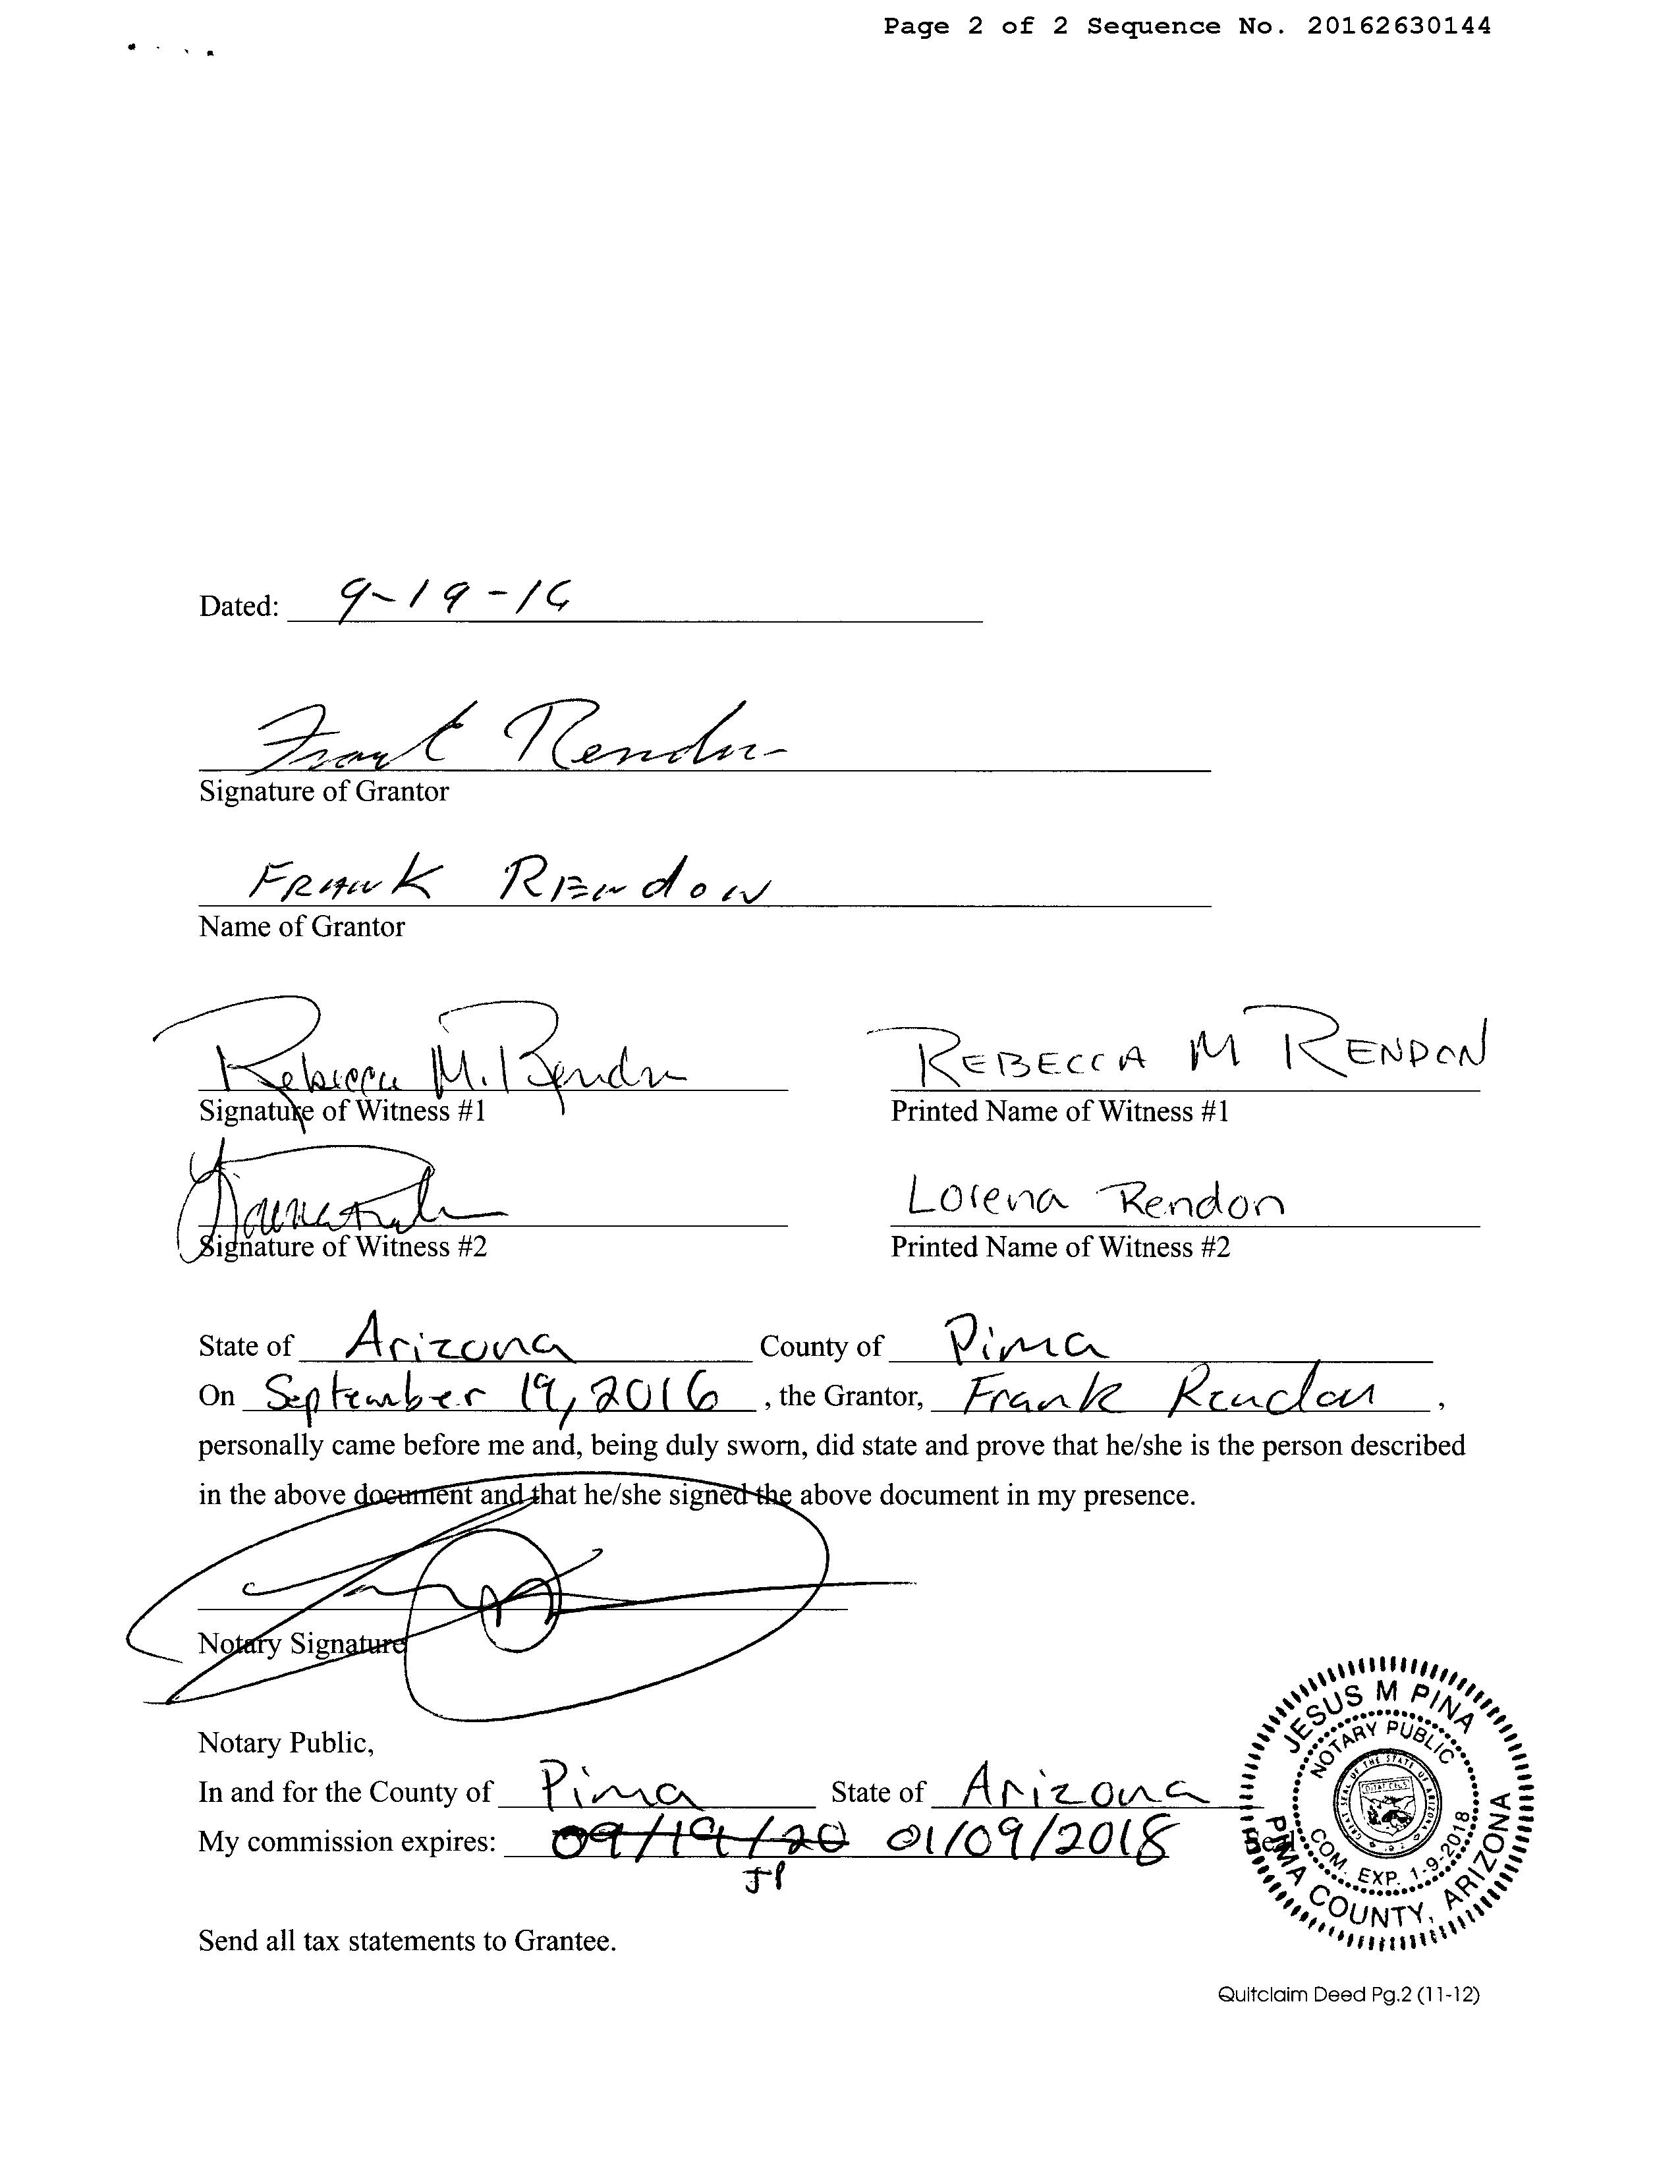 Page 2 of 2 Sequence No. 20162630144
Dated: 9-19-16
Frank Rendon
Signature of Grantor
FRANK RENdoN
Name of Grantor
Rebecca M. Rendon REBECCA M RENDON
Signature of Witness #1 Printed Name of Witness #1
Lorena Rendon
Signature of Witness #2 Printed Name of Witness #2
State of Arizona County of Pima
On September 19, 2016, the Grantor, Frank Rendon,
personally came before me and, being duly sworn, did state and prove that he/she is the person described
in the above document and that he/she signed the above document in my presence.
Notary Signature
Notary Public,
In and for the County of Pima State of Arizona
My commission expires: 09/19/20 01/09/2018 Seal
JP
JESUS M PINA
NOTARY PUBLIC
COM. EXP. 1-9-2018
PIMA COUNTY, ARIZONA
Send all tax statements to Grantee.
Quitclaim Deed Pg.2 (11-12)